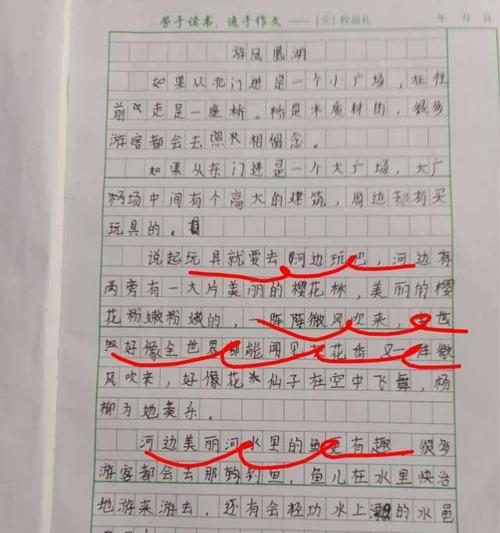 劳于读书，逸于作文——［元］程端礼 年 月 日
游凤凰湖
如果从北门进是一个小广场，在往
前走是一座桥。桥是木质材的，很多
游客都会去照片相留念。
如果从东门进是一个大广场，大广
场中间有个高大的建筑，周边都有买
玩具的。
说起玩具就要去河边玩吧，河边有
两旁有一大片美丽的樱花林，美丽的樱
花粉嫩粉嫩的，一阵阵微风吹来，
好像全世界都能闻见花香又一阵微
风吹来，好像花仙子在空中飞舞，杨
柳为她奏乐。
河边美丽河水里的鱼更有趣 很多
游客都会去那钓鱼，鱼儿在水里快活
地游来游去，还有会轻功水上的水